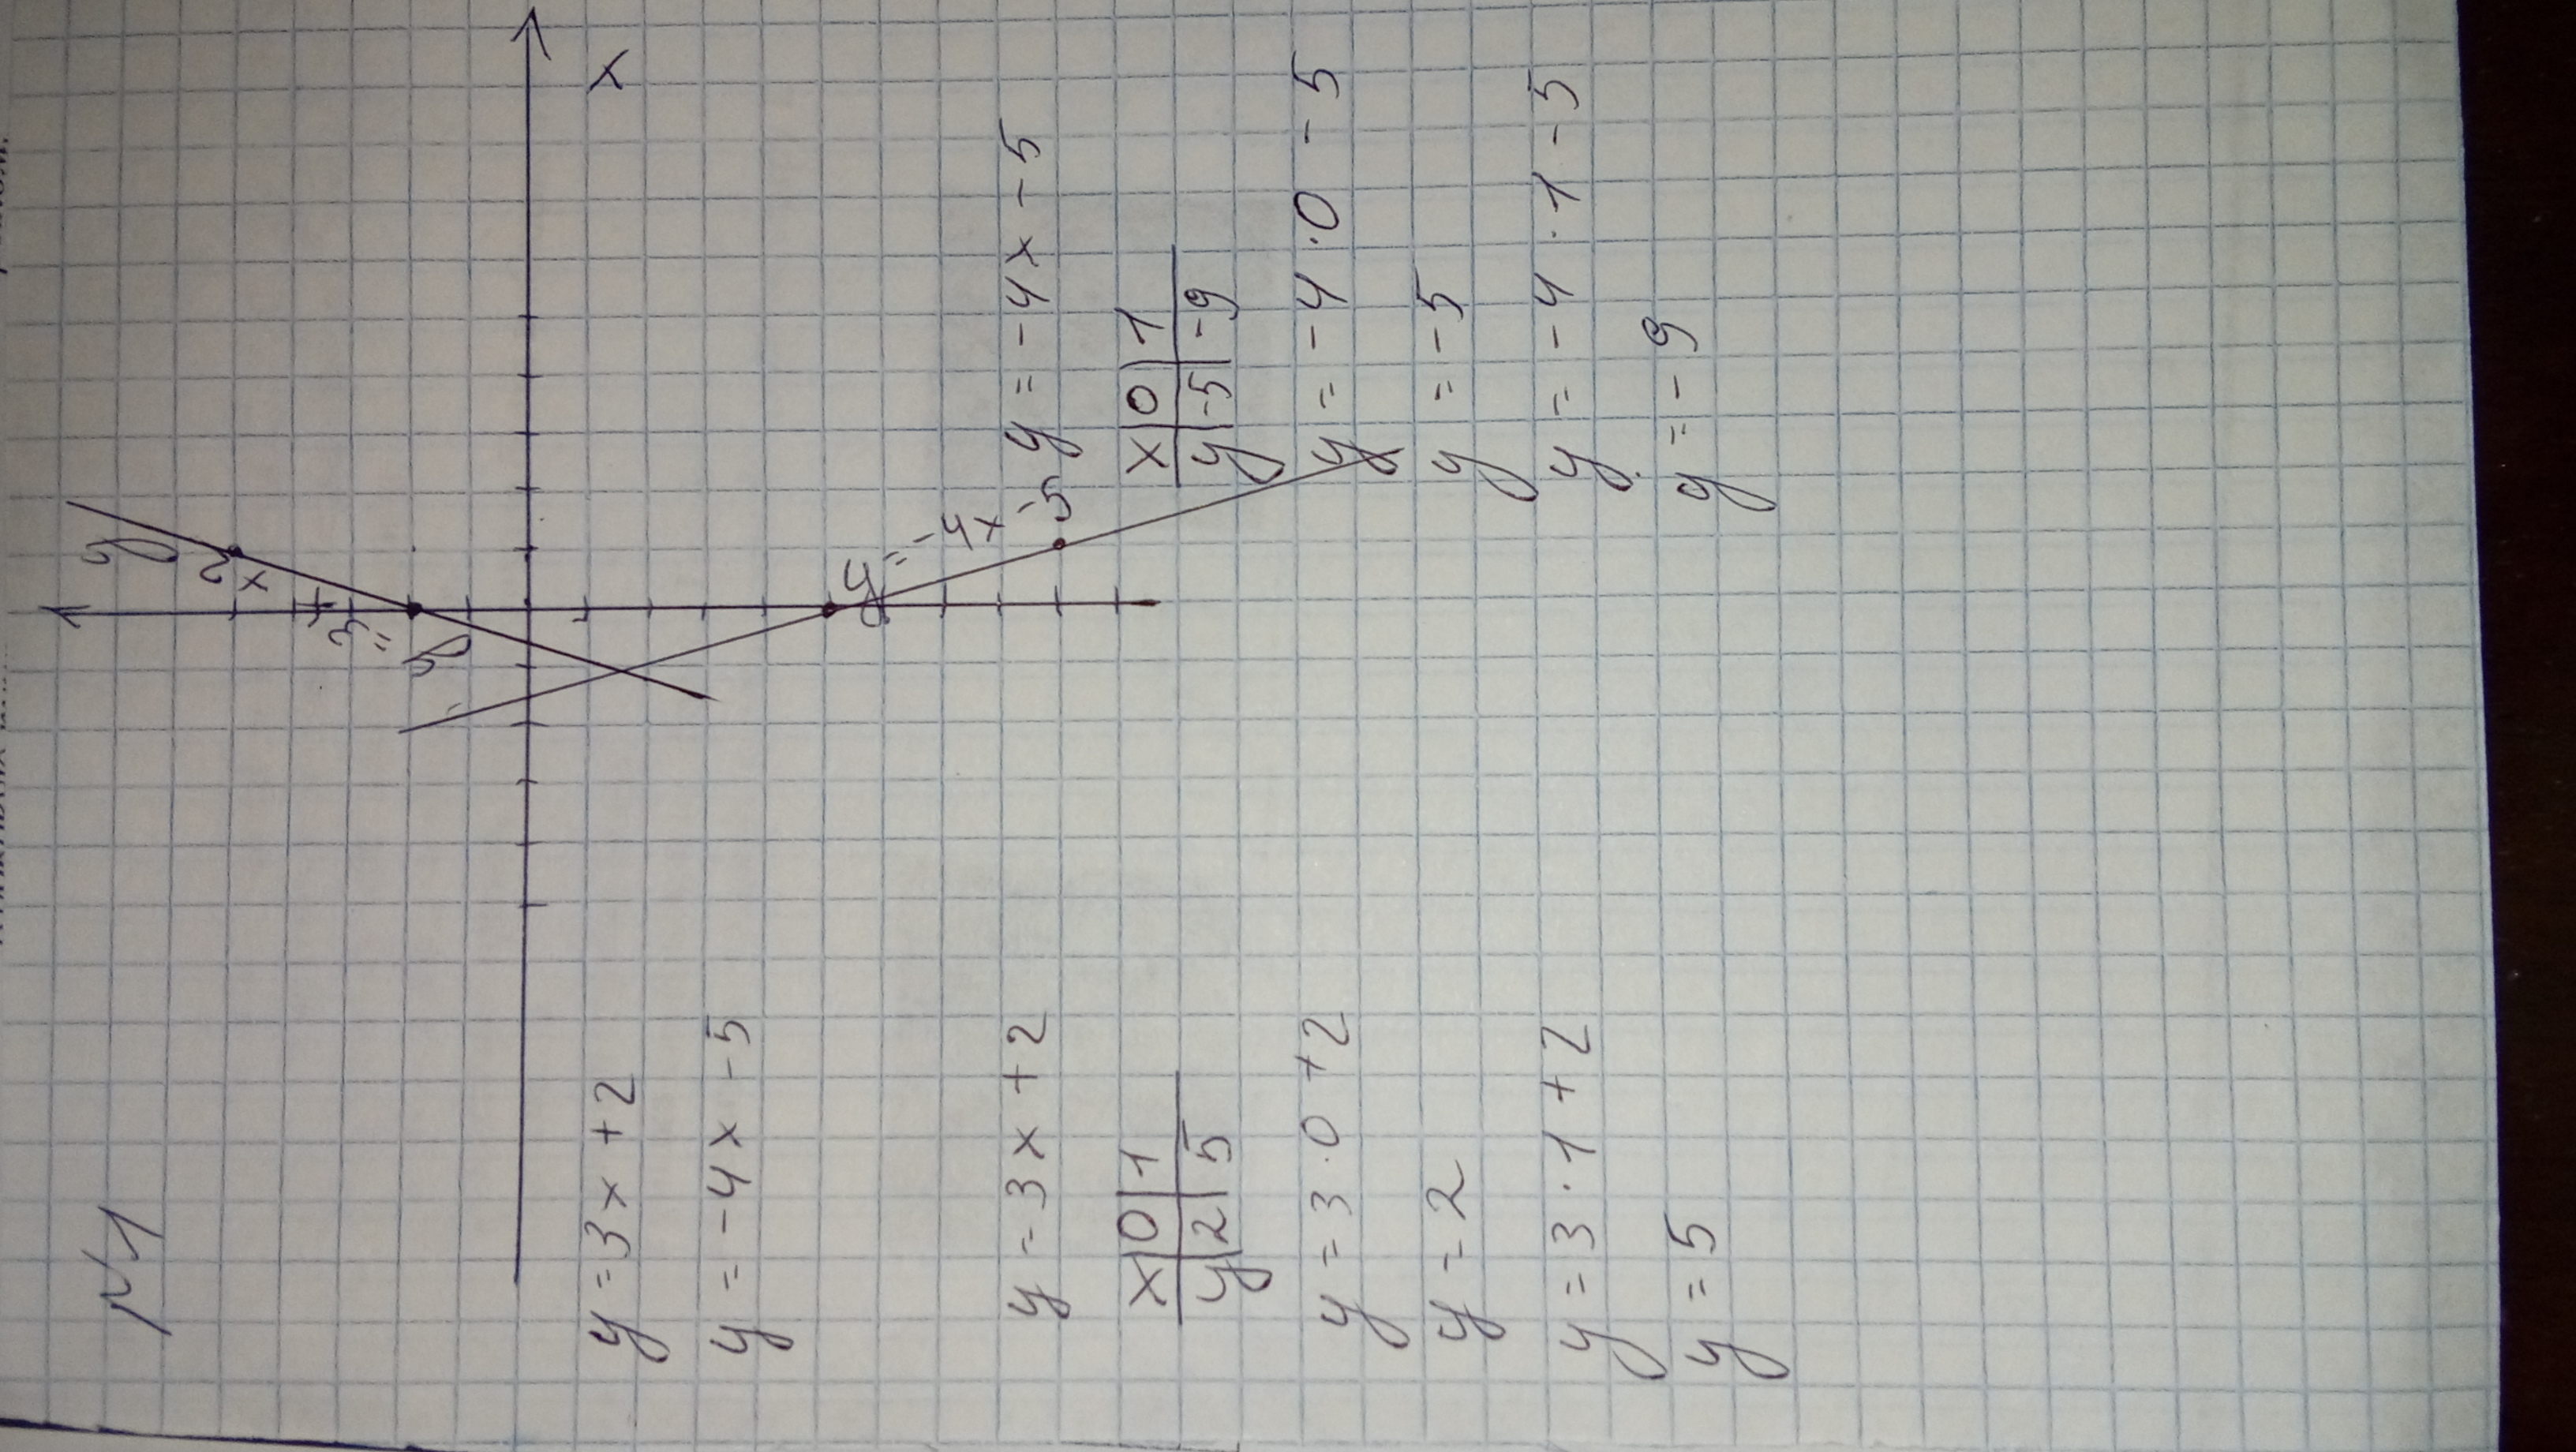 №1
y
x
y = 3x + 2
y = -4x - 5
y = 3x + 2
y = -4x - 5
y = 3x + 2
x 0 1
y 2 5
y = 3 · 0 + 2
y = 2
y = 3 · 1 + 2
y = 5
y = -4x - 5
x 0 1
y -5 -9
y = -4 · 0 - 5
y = -5
y = -4 · 1 - 5
y = -9